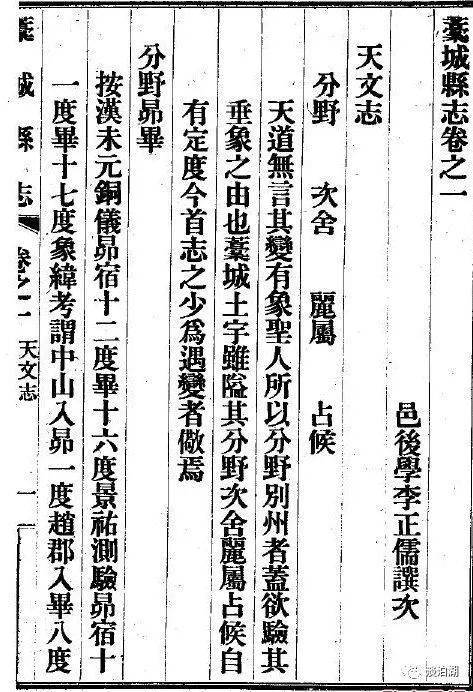 藁城縣志卷之一
邑後學李正儒譔次
天文志
分野 次舍 麗屬 占候
天道無言其變有象聖人所以分野別州者蓋欲驗其
垂象之由也藁城土宇雖隘其分野次舍麗屬占候自
有定度今首志之少爲遇變者儆焉
分野昴畢
按漢未元銅儀昴宿十二度畢十六度景祐測驗昴宿十
一度畢十七度象緯考謂中山入昴一度趙郡入畢八度
藁城縣志 卷之一 天文志 一
淡泊湖